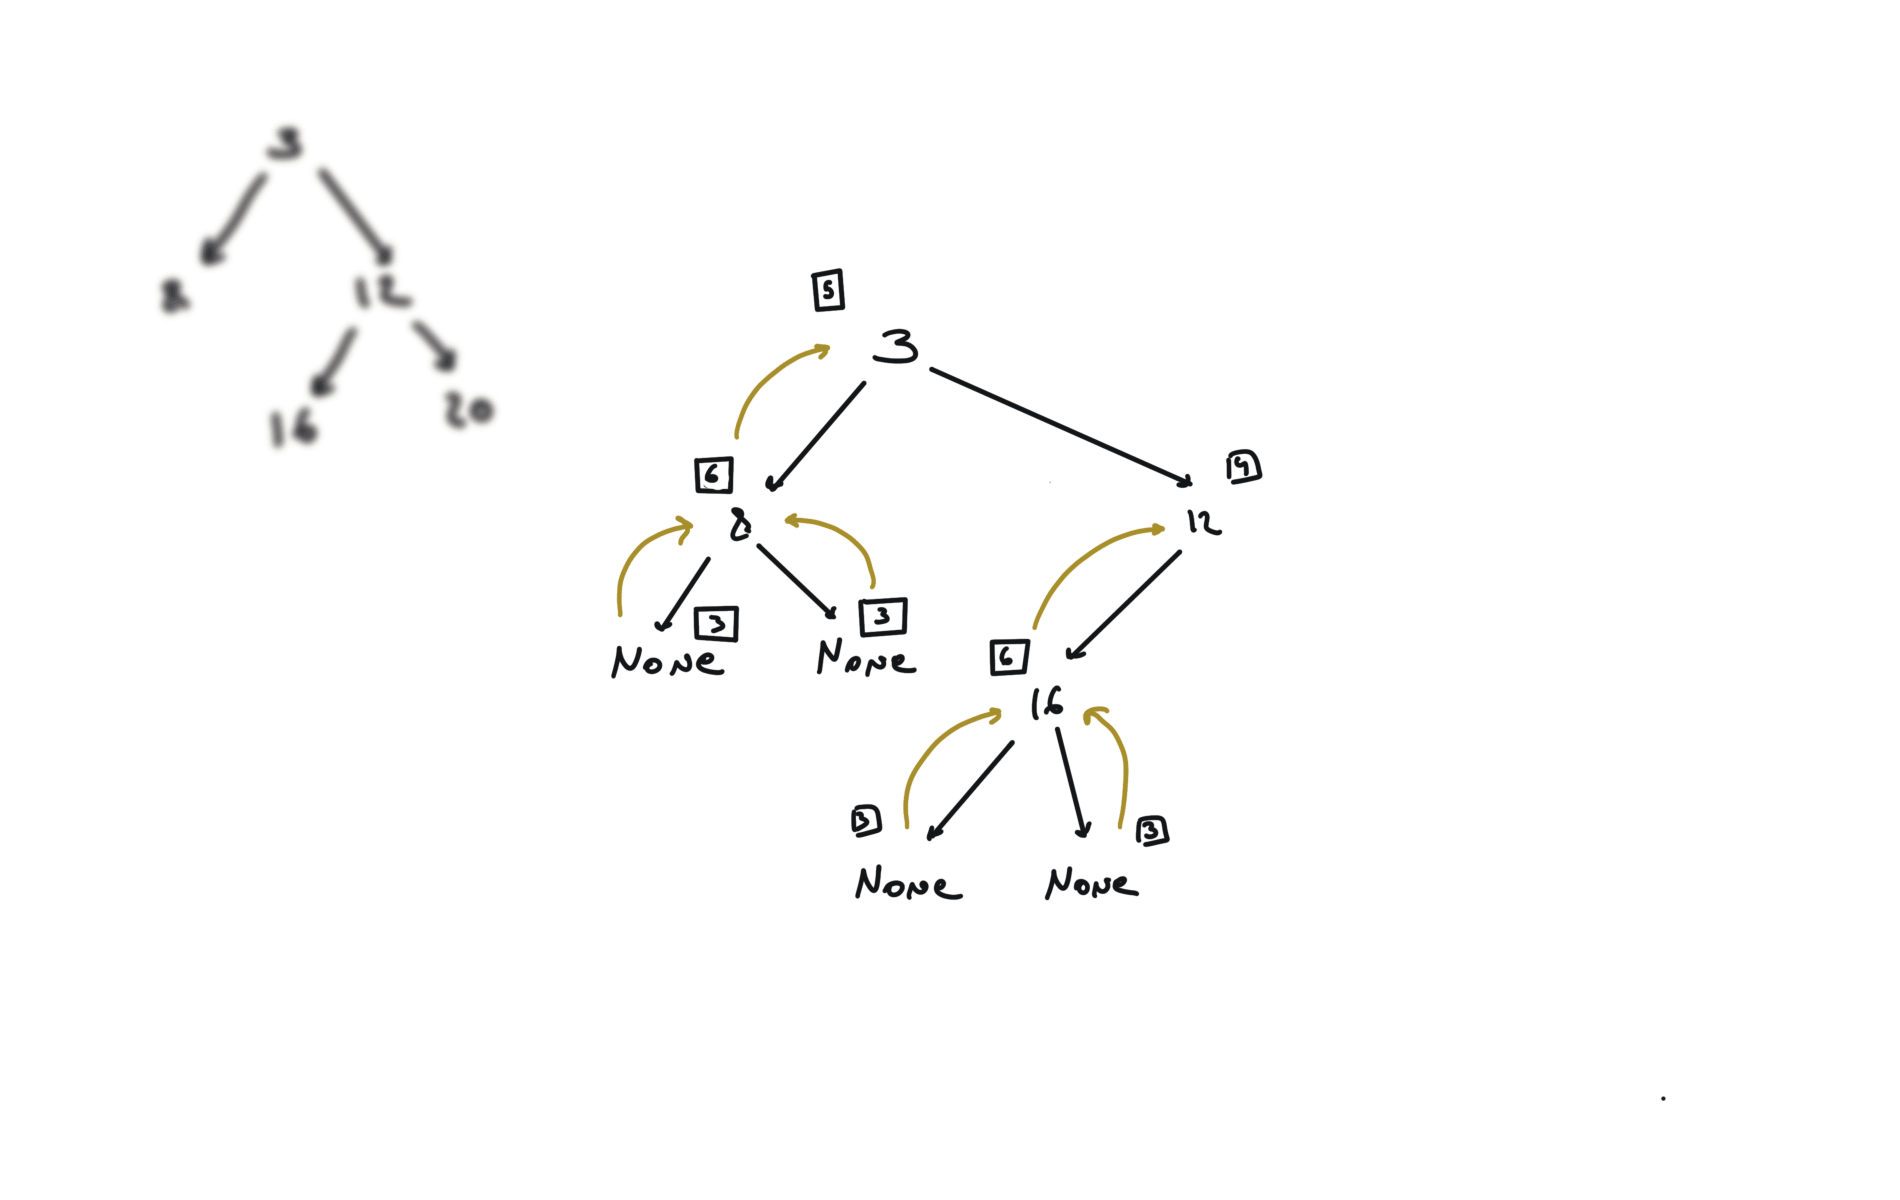 3
8 12
16 20
5
3
6
4
8
12
3
3
None
None
6
16
3
3
None
None